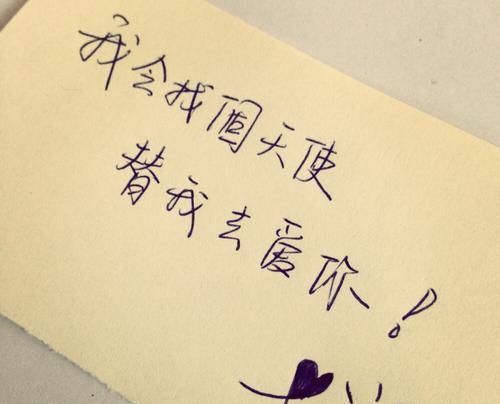 我会找個天使
替我去爱你！